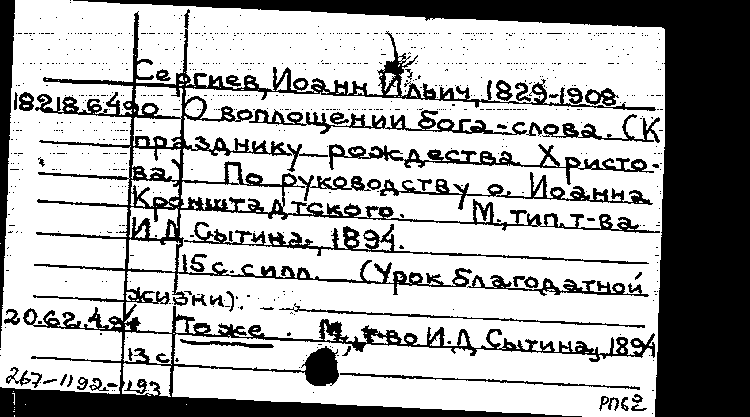 Сергиев, Иоанн Ильич, 1829-1908.
18.218.6.490 О воплощении бога-слова. (К
празднику рождества Христо-
ва) По руководству о. Иоанна
Кронштадтского. М., тип. т-ва
И.Д. Сытина, 1894.
15 с. с илл. (Урок благодатной
жизни).
20.62.4.94 То же. М., т-во И.Д. Сытина, 1894
13 с.
267-1192-1193
РП62